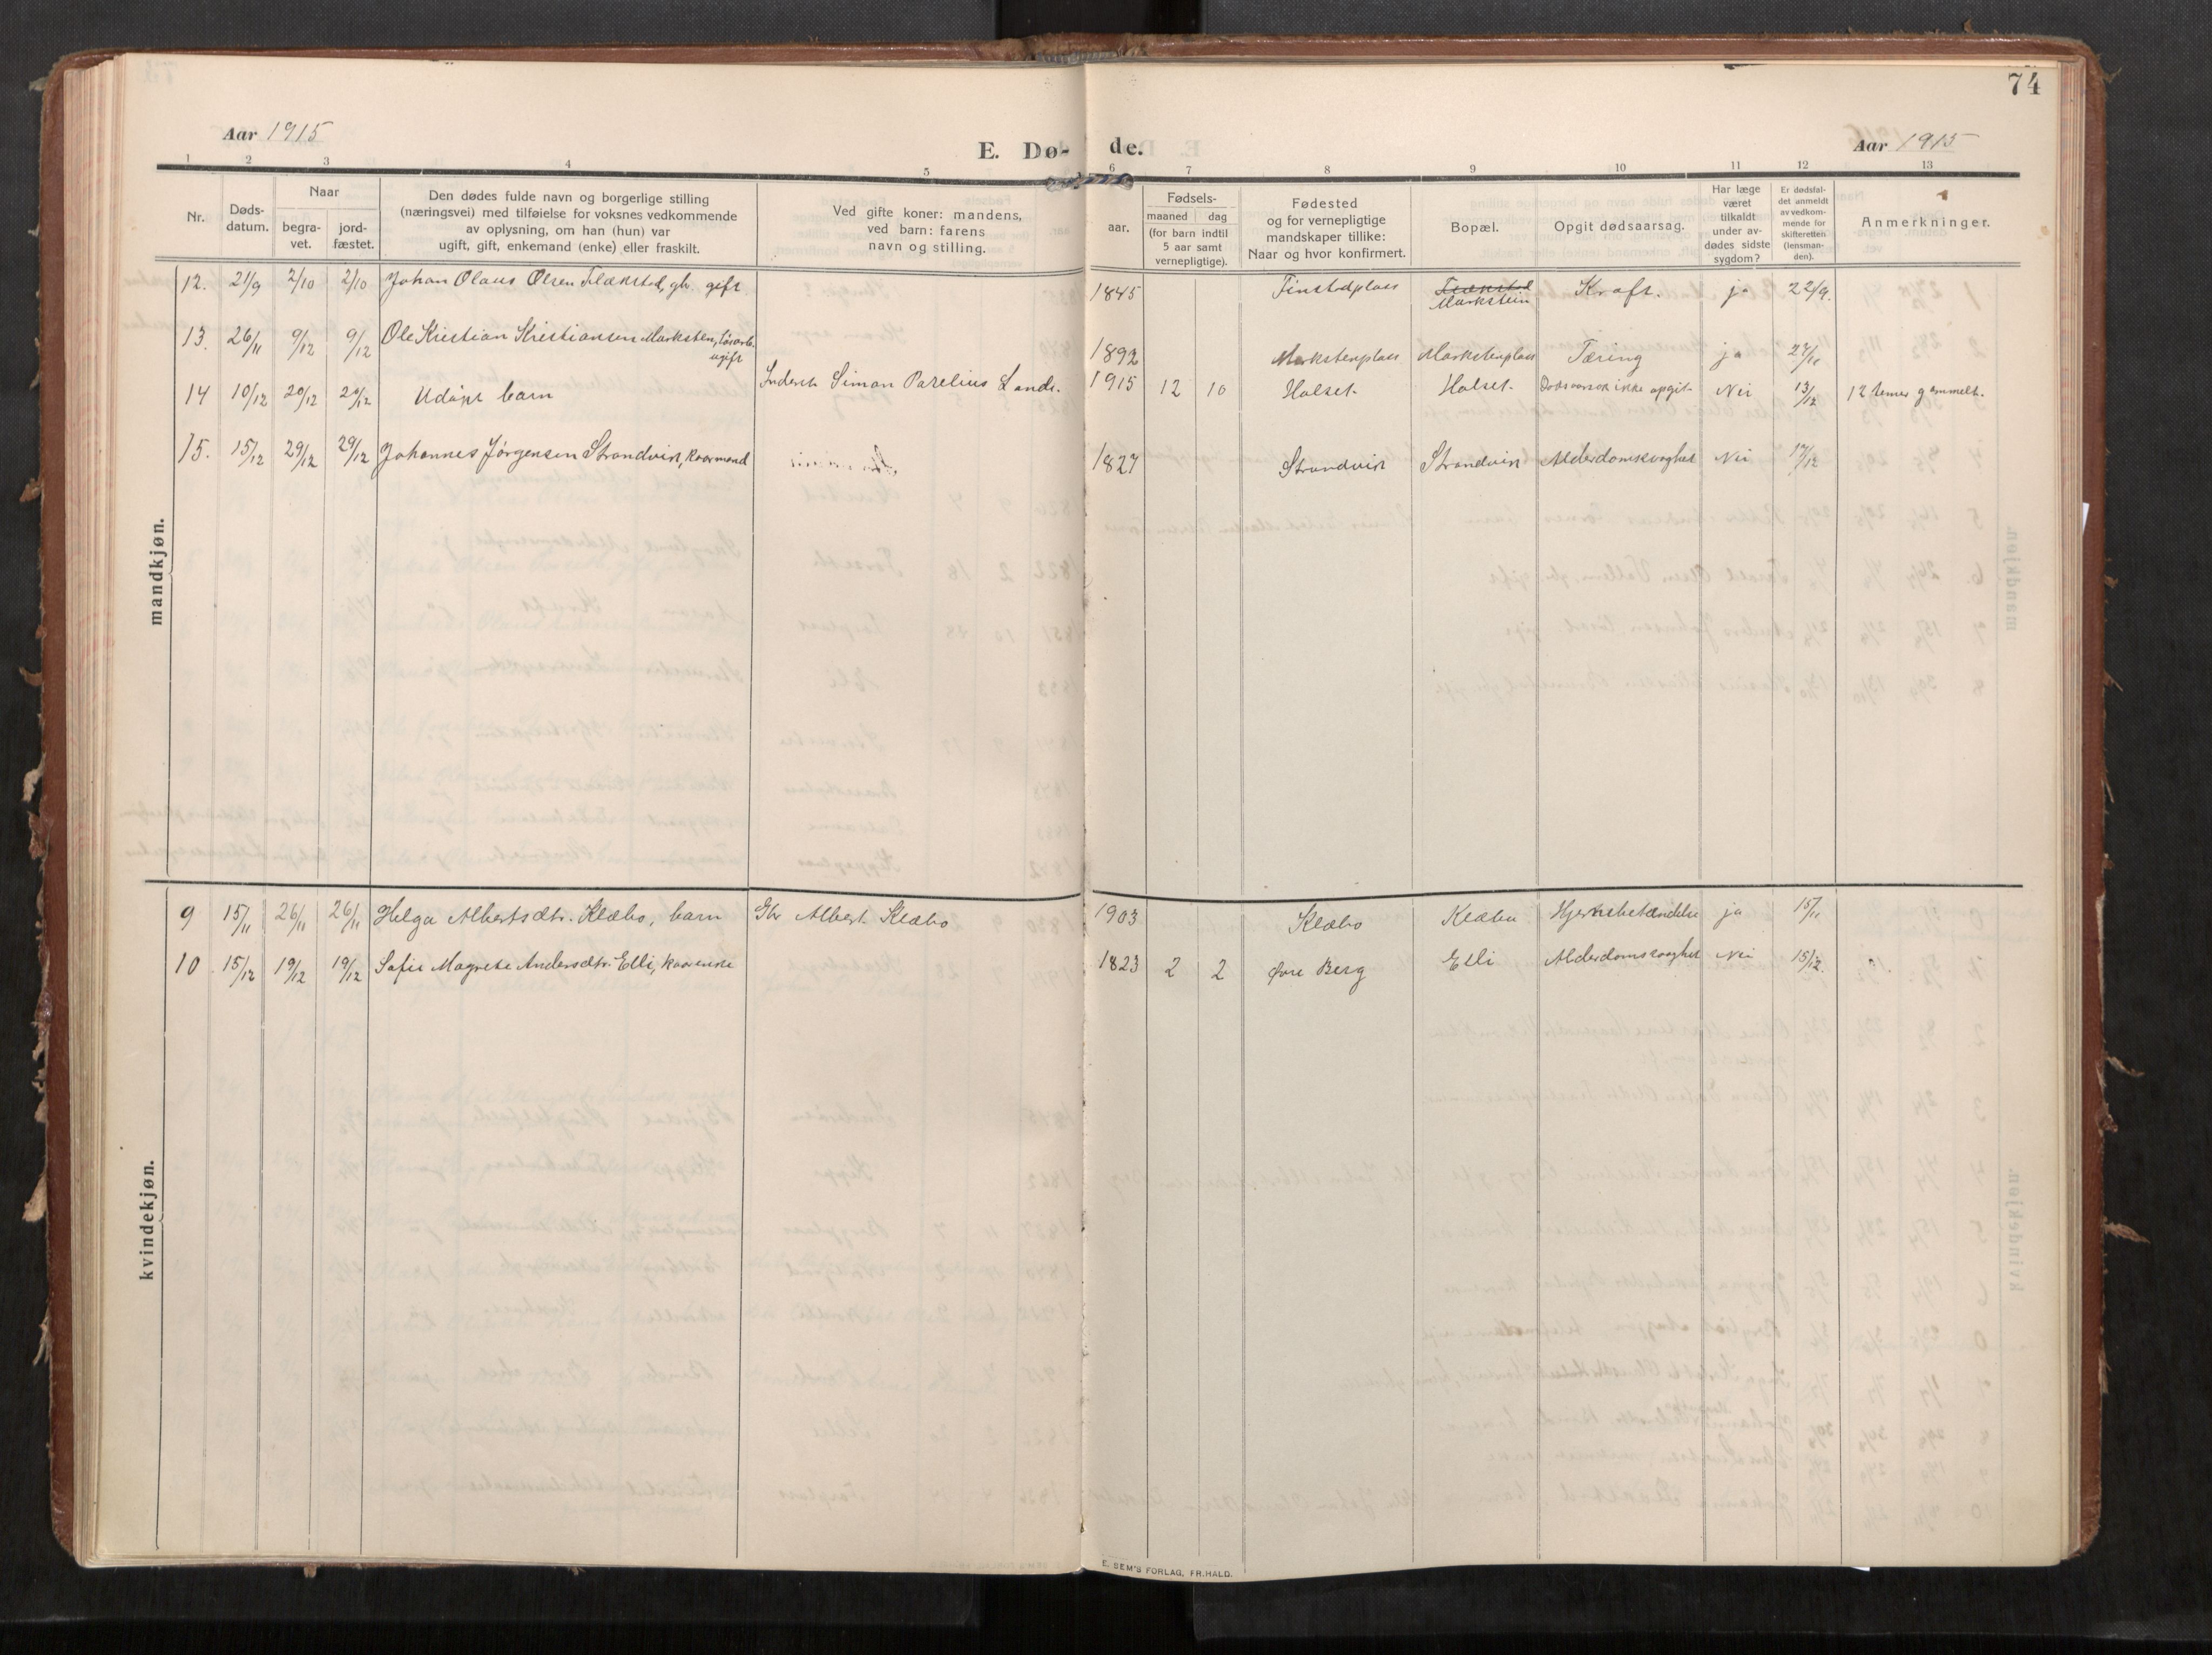 74
Aar 1915
E. Dø- de.
Aar 1915
1 2 3 4 5 6 7 8 9 10 11 12 13
Nr.
Døds-
datum.
Naar
begra-
vet.
jord-
fæstet.
Den dødes fulde navn og borgerlige stilling
(næringsvei) med tilføielse for voksnes vedkommende
av oplysning, om han (hun) var
ugift, gift, enkemand (enke) eller fraskilt.
Ved gifte koner: mandens,
ved barn: farens
navn og stilling.
aar.
Fødsels-
maaned dag
(for barn indtil
5 aar samt
vernepligtige).
Fødested
og for vernepligtige
mandskaper tillike:
Naar og hvor konfirmert.
Bopæl.
Opgit dødsaarsag.
Har læge
været
tilkaldt
under av-
dødes sidste
sygdom?
Er dødsfal-
det anmeldt
av vedkom-
mende for
skifteretten
(lensman-
den).
Anmerkninger.
mandkjøn.
12. 21/9 2/10 2/10 Johan Olaus Olsen Flækstad, gbr gift 1845 Tinstdplass Flækstad Markstein Kræft. ja 22/9.
13. 26/11 9/12 9/12 Ole Kristian Kristiansen Marksten, løsarb. 1892 Markstenplass Markstenplass Tæring ja 27/11
ugift
14 10/12 29/12 29/12 Udøpt barn Inderst Simon Parelius Lands. 1915 12 10 Halset Halset Dødsaarsak ikke opgit Nei 13/12 12 timer gammelt.
15. 15/12 29/12 29/12 Johannes Jørgensen Strandvik, kaarmand 1827 Strandvik Strandvik Alderdomssvaghet Nei 17/12
kvindekjøn.
9 15/11 26/11 26/11 Helga Albertsdtr. Klæbo, barn Gbr Albert Klæbo 1903 Klæbo Klæbo Hjernebetændelse ja 15/11
10 15/12 19/12 19/12 Sofie Magrete Andersdtr. Elli, kaarenke 1823 2 2 Øvre Berg Elli Alderdomssvaghet Nei 15/12.
E. SEM'S FORLAG, FR.HALD.